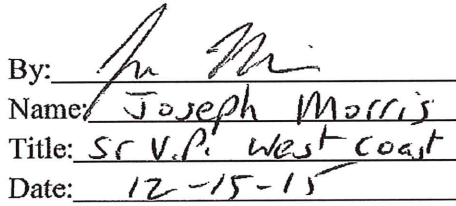 By:
Name: Joseph Morris
Title: Sr V.P. West Coast
Date: 12-15-15